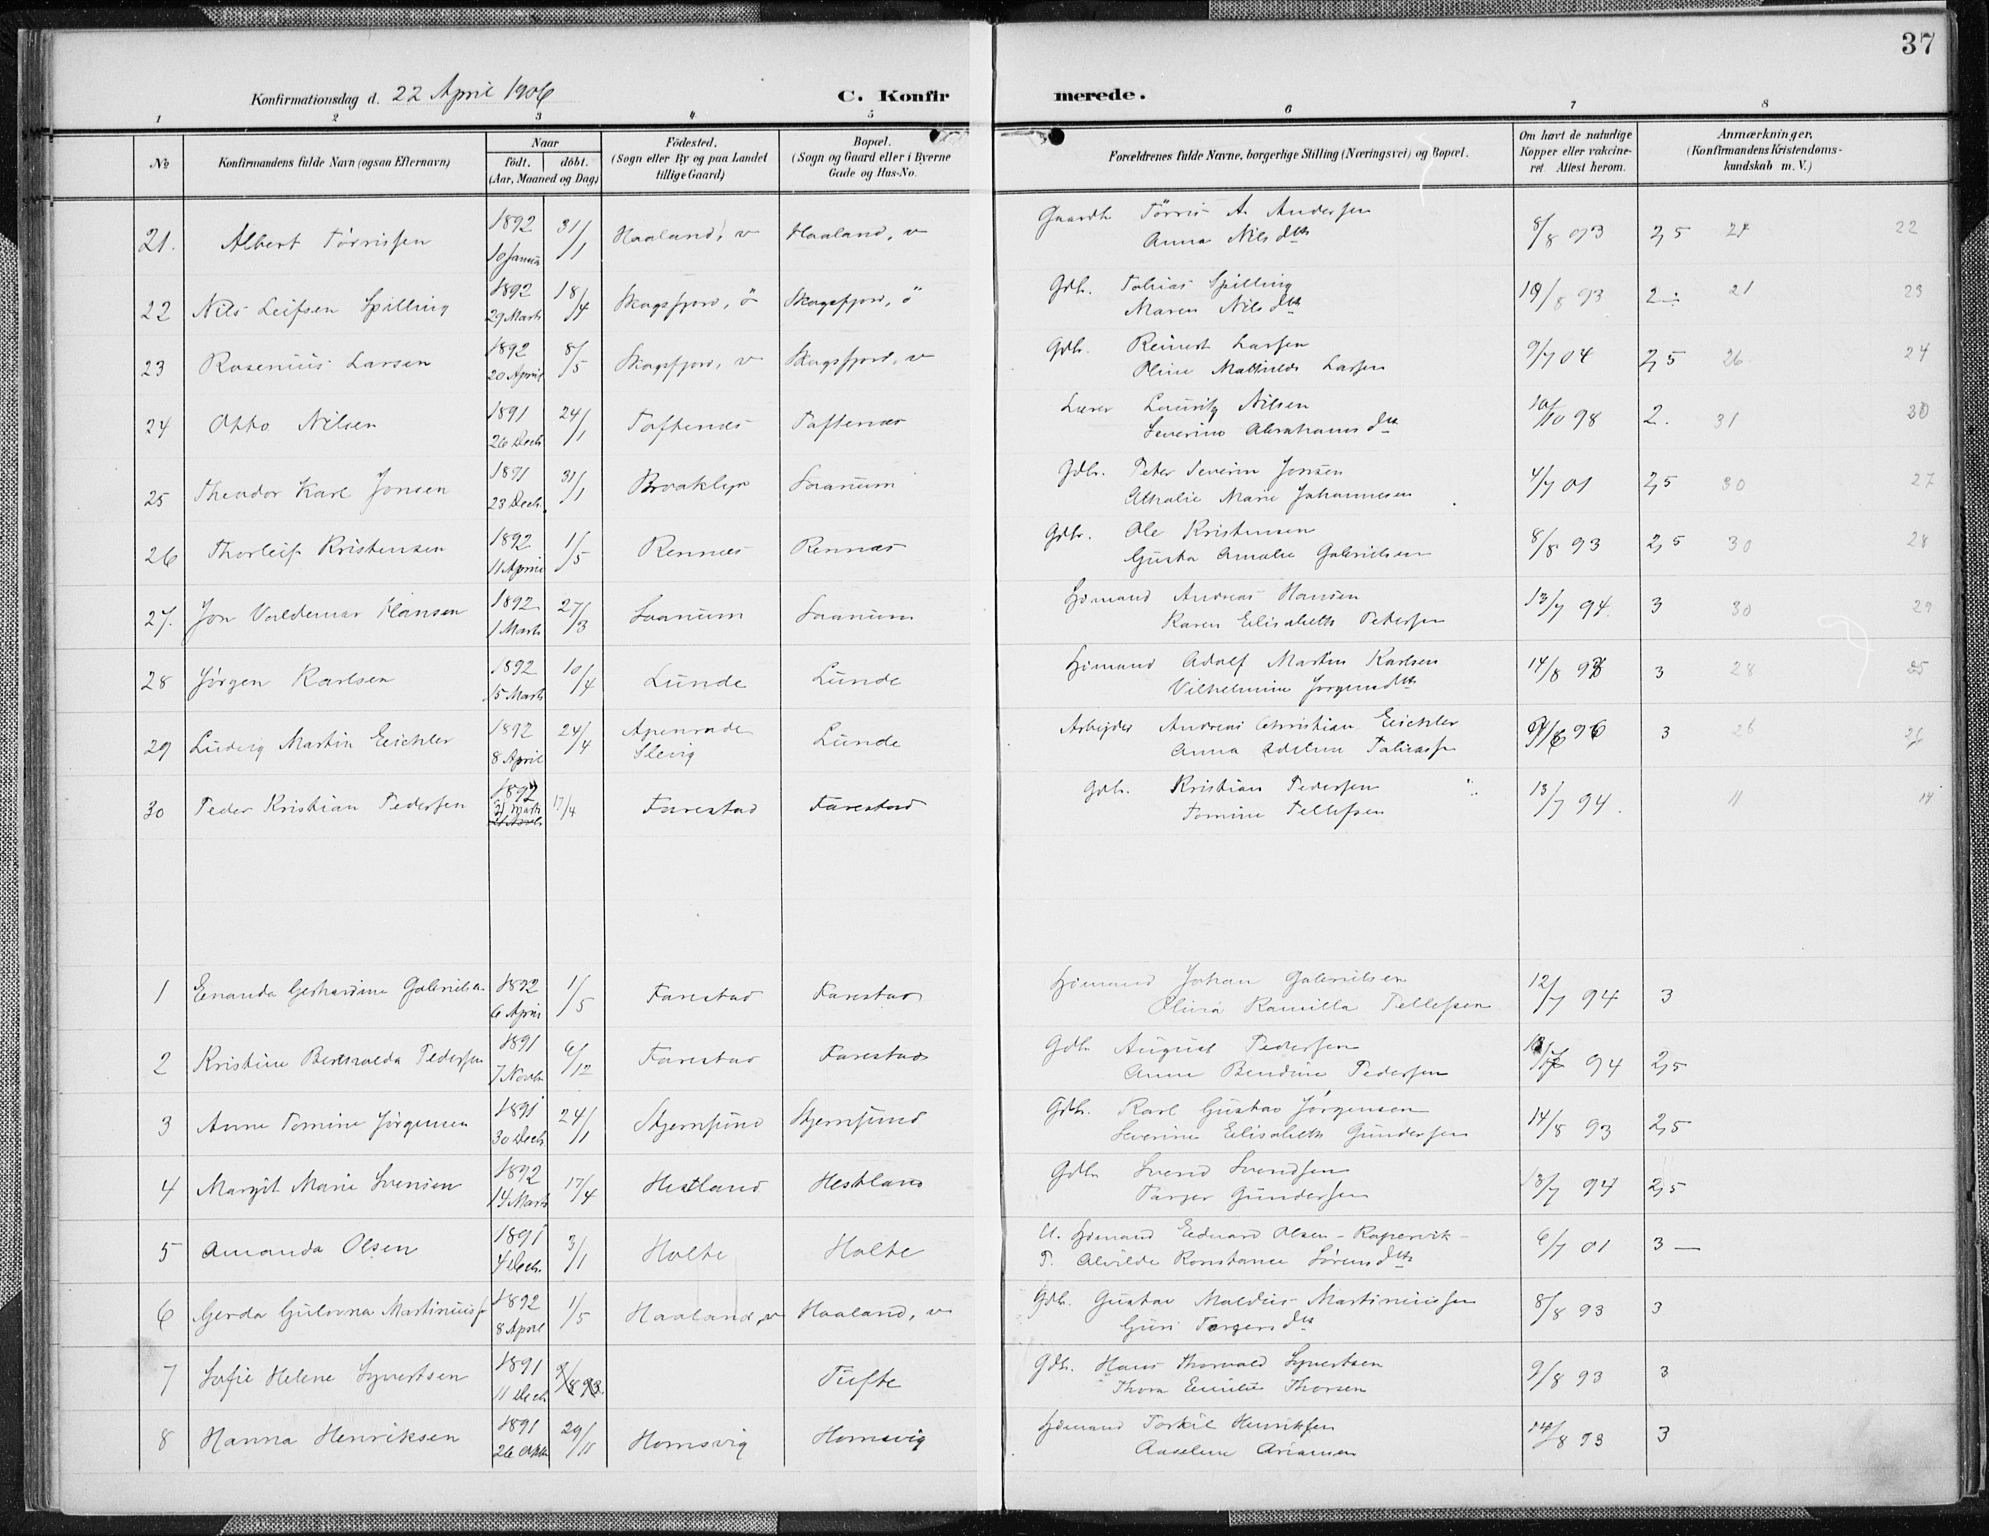 37
Konfirmationsdag d. 22 April 1906 C. Konfirmerede.
1 2 3 4 5 6 7 8
No
Konfirmandens fulde Navn (ogsaa Efternavn)
Naar
født. døbt.
(Aar, Maaned og Dag)
Fødested.
(Sogn eller By og paa Landet
tillige Gaard)
Bopæl.
(Sogn og Gaard eller i Byerne
Gade og Hus-No.
Forældrenes fulde Navne, borgerlige Stilling (Næringsvei) og Bopæl.
Om havt de naturlige
Kopper eller vakcine-
ret. Attest herom.
Anmærkninger,
(Konfirmandens Kristendoms-
kundskab m. V.)
21. Albert Tørrissen 1892 10 Januar 31/1 Haaland, v Haaland, v Gaardb. Tørris A. Andersen 8/8 93 2,5 24 22
Anna Nilsdtr
22 Nils Leifsen Spilling 1892 29 Marts 18/4 Skogsfjord, ö Skogsfjord, ö Gdb. Tobias Spilling 19/8 93 2 21 23
Maren Nilsdtr
23 Rosenius Larsen 1892 20 April 8/5 Skogsfjord, v Skogsfjord, v Gdb. Reinert Larsen 9/7 04 2,5 26 24
Oline Mathilde Larsen
24 Otto Nilsen 1891 26 Decb. 24/1 Toftenes Toftenes Lærer Lauritz Nilsen 10/10 98 2. 31 30
Severine Abrahamsdtr
25 Theodor Karl Jonsen 1891 23 Decb. 31/1 Brooklyn Saanum Gdb. Peter Severin Jonsen 4/7 01 2,5 30 27
Athalie Marie Johannesen
26 Thorleif Kristensen 1892 11 April 1/5 Rennes Rennes Gdb. Ole Kristensen 8/8 93 2,5 30 28
Gusta Amalie Gabrielsen
27. Jon Valdemar Hansen 1892 1 Marts 27/3 Saanum Saanum Sømand Andreas Hansen 13/7 94. 3 30 29
Karen Elisabeth Petersen
28 Jørgen Karlsen 1892 15 Marts 10/4 Lunde Lunde Sømand Adolf Martin Karlsen 14/8 93 3 28 25
Vilhelmine Jørgensdtr
29 Ludvig Martin Eichler 1892 8 April 24/4 Apenrade Slevig Lunde Arbejder Andreas Christian Eichler 96 3 26 26
Anna Adeline Tobiassen
30 Peder Kristian Pedersen 1892 21 Marts 17/4 Farestad Farestad Gdb. Kristian Pedersen 13/7 94. 11 14
Tomine Tellefsen
1 Enanda Gerhardine Gabrielsen 1892 6 April 1/5 Farestad Farestad Sømand Johan Gabrielsen 12/7 94 3
Olivia Kamilla Tellefsen
2 Kristine Pedersen 1891 7 Novb. 6/12 Farestad Farestad Gdb. August Pedersen 94 2,5
Anne Bendine Pedersen
3 Anne Tomine Jørgensen 1891 30 Decb. 24/1 Stjernsund Stjernsund Gdb. Karl Gustav Jørgensen 14/8 93 2,5
Severine Elisabeth Gundersen
4 Margit Marie Svensen 1892 14 Marts 17/4 Hestland Hestland Gdb. Svend Svendsen 13/7 94 2,5
Gundersen
5 Amanda Olsen 1891 4 Decb. 3/1 Holte Holte U. Sømand Edvard Olsen - 6/7 01 3 —
P. Alvilde Konstance Sørensdtr
6 Gerda Gulovna Martiniuss. 1892 8 April 1/5 Haaland, v Haaland, v Gdb. Gustav Maldius Martiniussen 8/8 93 3
Guri Torgersdtr
7 Sofie Helene Syvertsen 1891 11 Decb. 9/8 93. Tufte Gdb. Hans Thorvald Syvertsen 9/8 93 3
Thora Emilie Thorsen
8 Hanna Henriksen 1891 26 Oktb. 29/11 Homsvig Homsvig Sømand Torkil Henriksen 14/8 93 3
Aaselene Ariansen